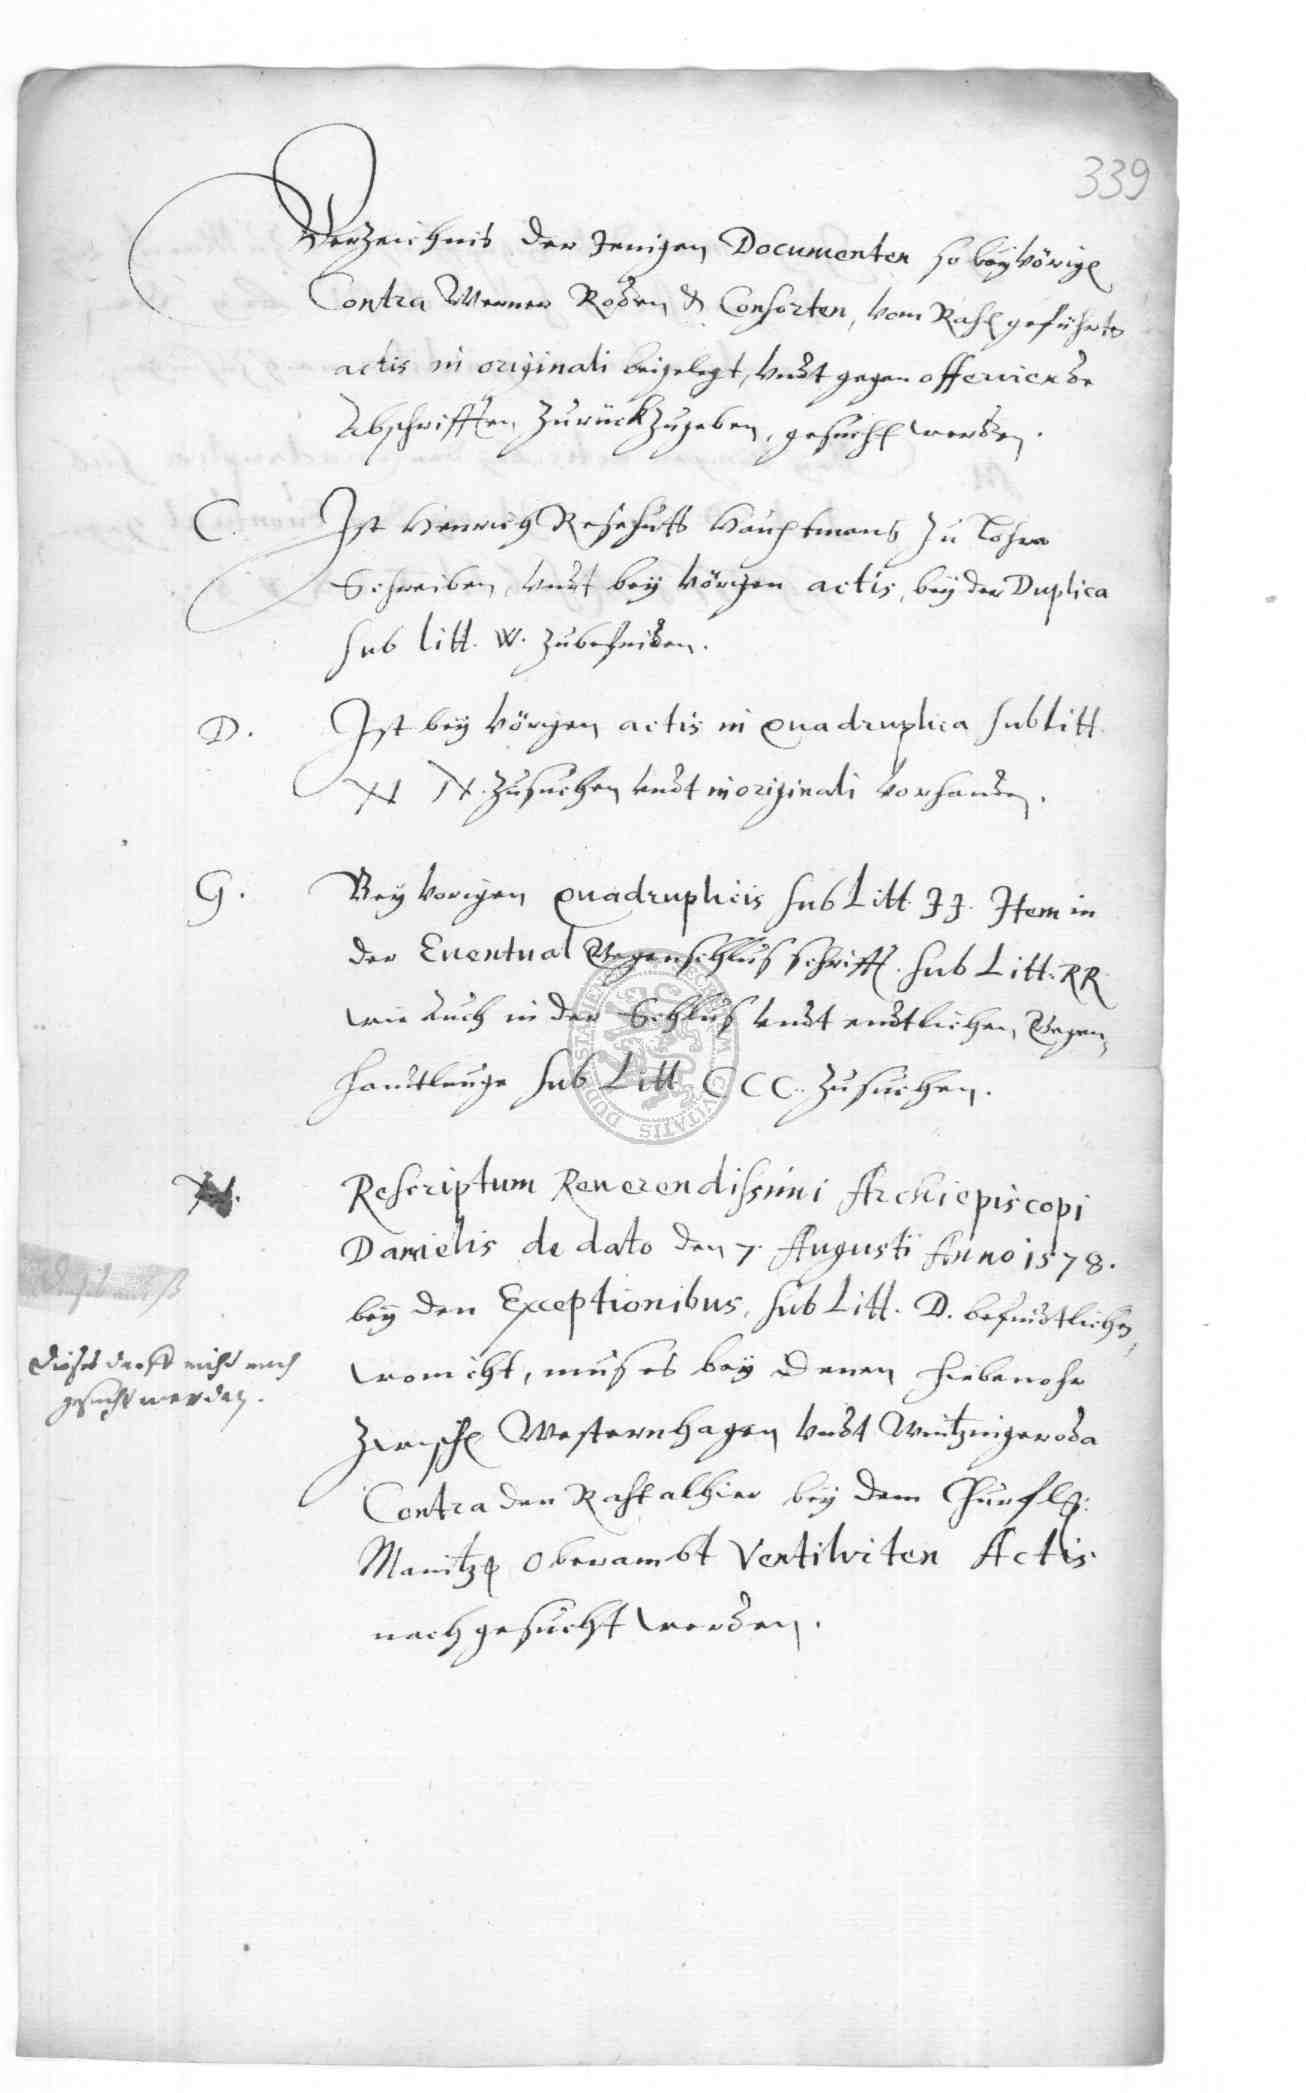 339
Verzeichnis der Jenigen Documenten so bey vörige
Contra Werner Roden & Consorten, vom Raht geführte
actis in originali beigelegt, undt gegen offerierde
Abschrifften zurückzugeben, gesucht werden.
C. Ist Henrich Hauptmans zu Lohra
Schreiben, undt bey vörigen actis, bey der Duplica
sub litt. W. zubefinden.
D. Ist bey vörigen actis in quadruplica sub litt.
N N. zusuchen undt in originali vorhanden.
G. Bey vorigen quadruplicis sub Litt. JJ. Item in
der Eventual Gegenschlus schrifft. sub Litt. RR.
wie auch in der Schlus undt endtlichen Gegen
handtlunge sub Litt CCC. zusuchen.
Rescriptum Reverendissimi Archiepiscopi
Danielis de dato den 7. Augusti Anno 1578.
bey den Exceptionibus, sub Litt. D. befindtlichen,
wo nicht, mus es bey denen hiebevohr
Dieses darff nicht nach
gesucht werden.
zwische Westernhagen undt Wintzingeroda
Contra den Raht alhier bey dem Churfl:
Maintz Oberambt Ventilirten Actis
nachgesucht werden.
DUDERSTAMENSIS CIVITATIS